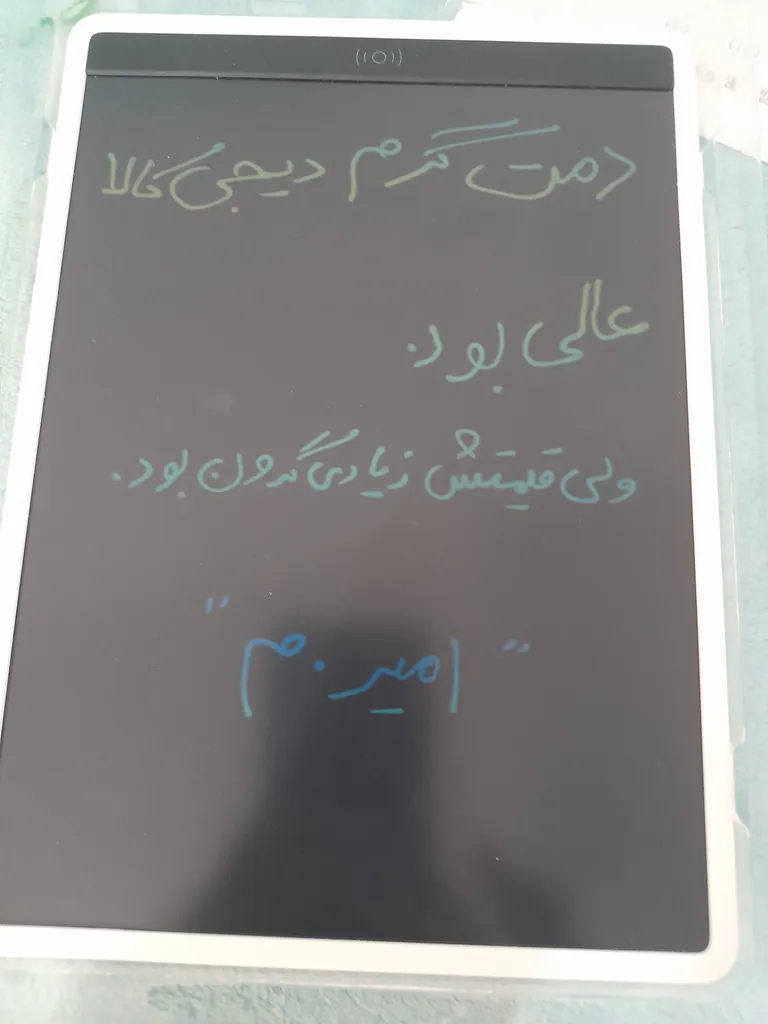 دمت گرم دیجی کالا
عالی بود.
ولی قیمتش زیادی گرون بود.
"امیر.م"